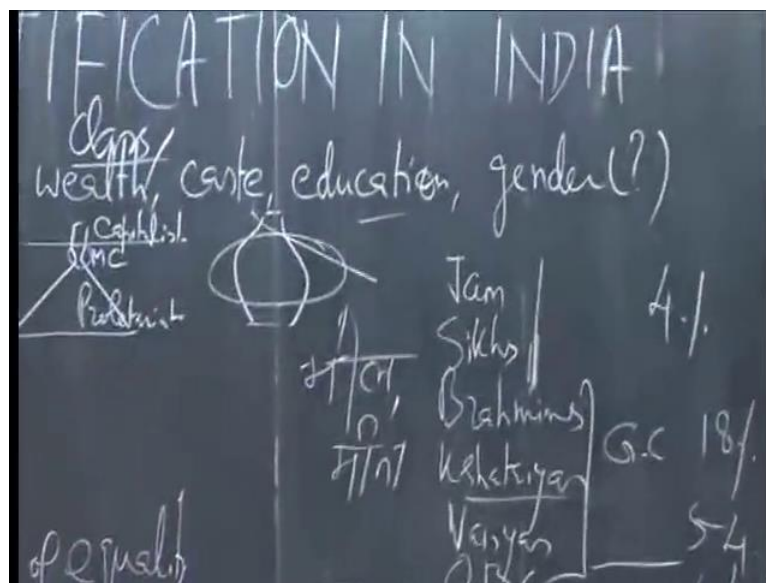 TIFICATION IN INDIA
class/
wealth, caste, education, gender(?)
Capitalist
UMC
Proletariat
Jain
4%
Sikhs
Brahmins
G.C 18%
Kshatriyas
Vaisyas
54
OBC
of equality